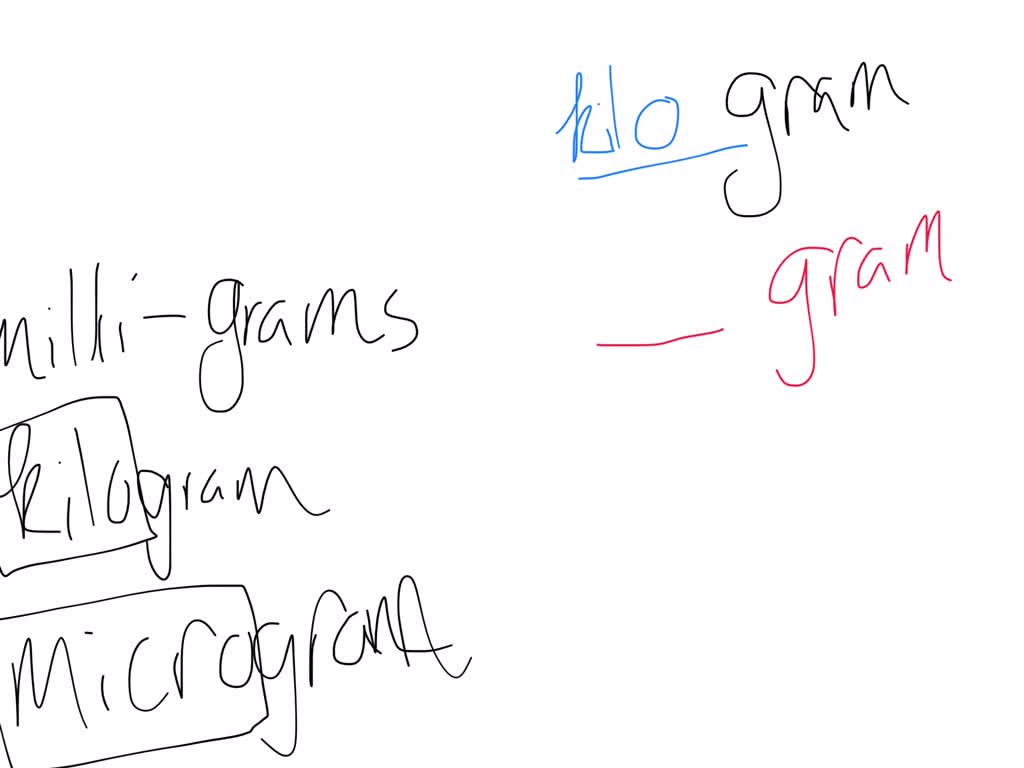 kilo gram
gram
milli-grams
kilogram
Microgram